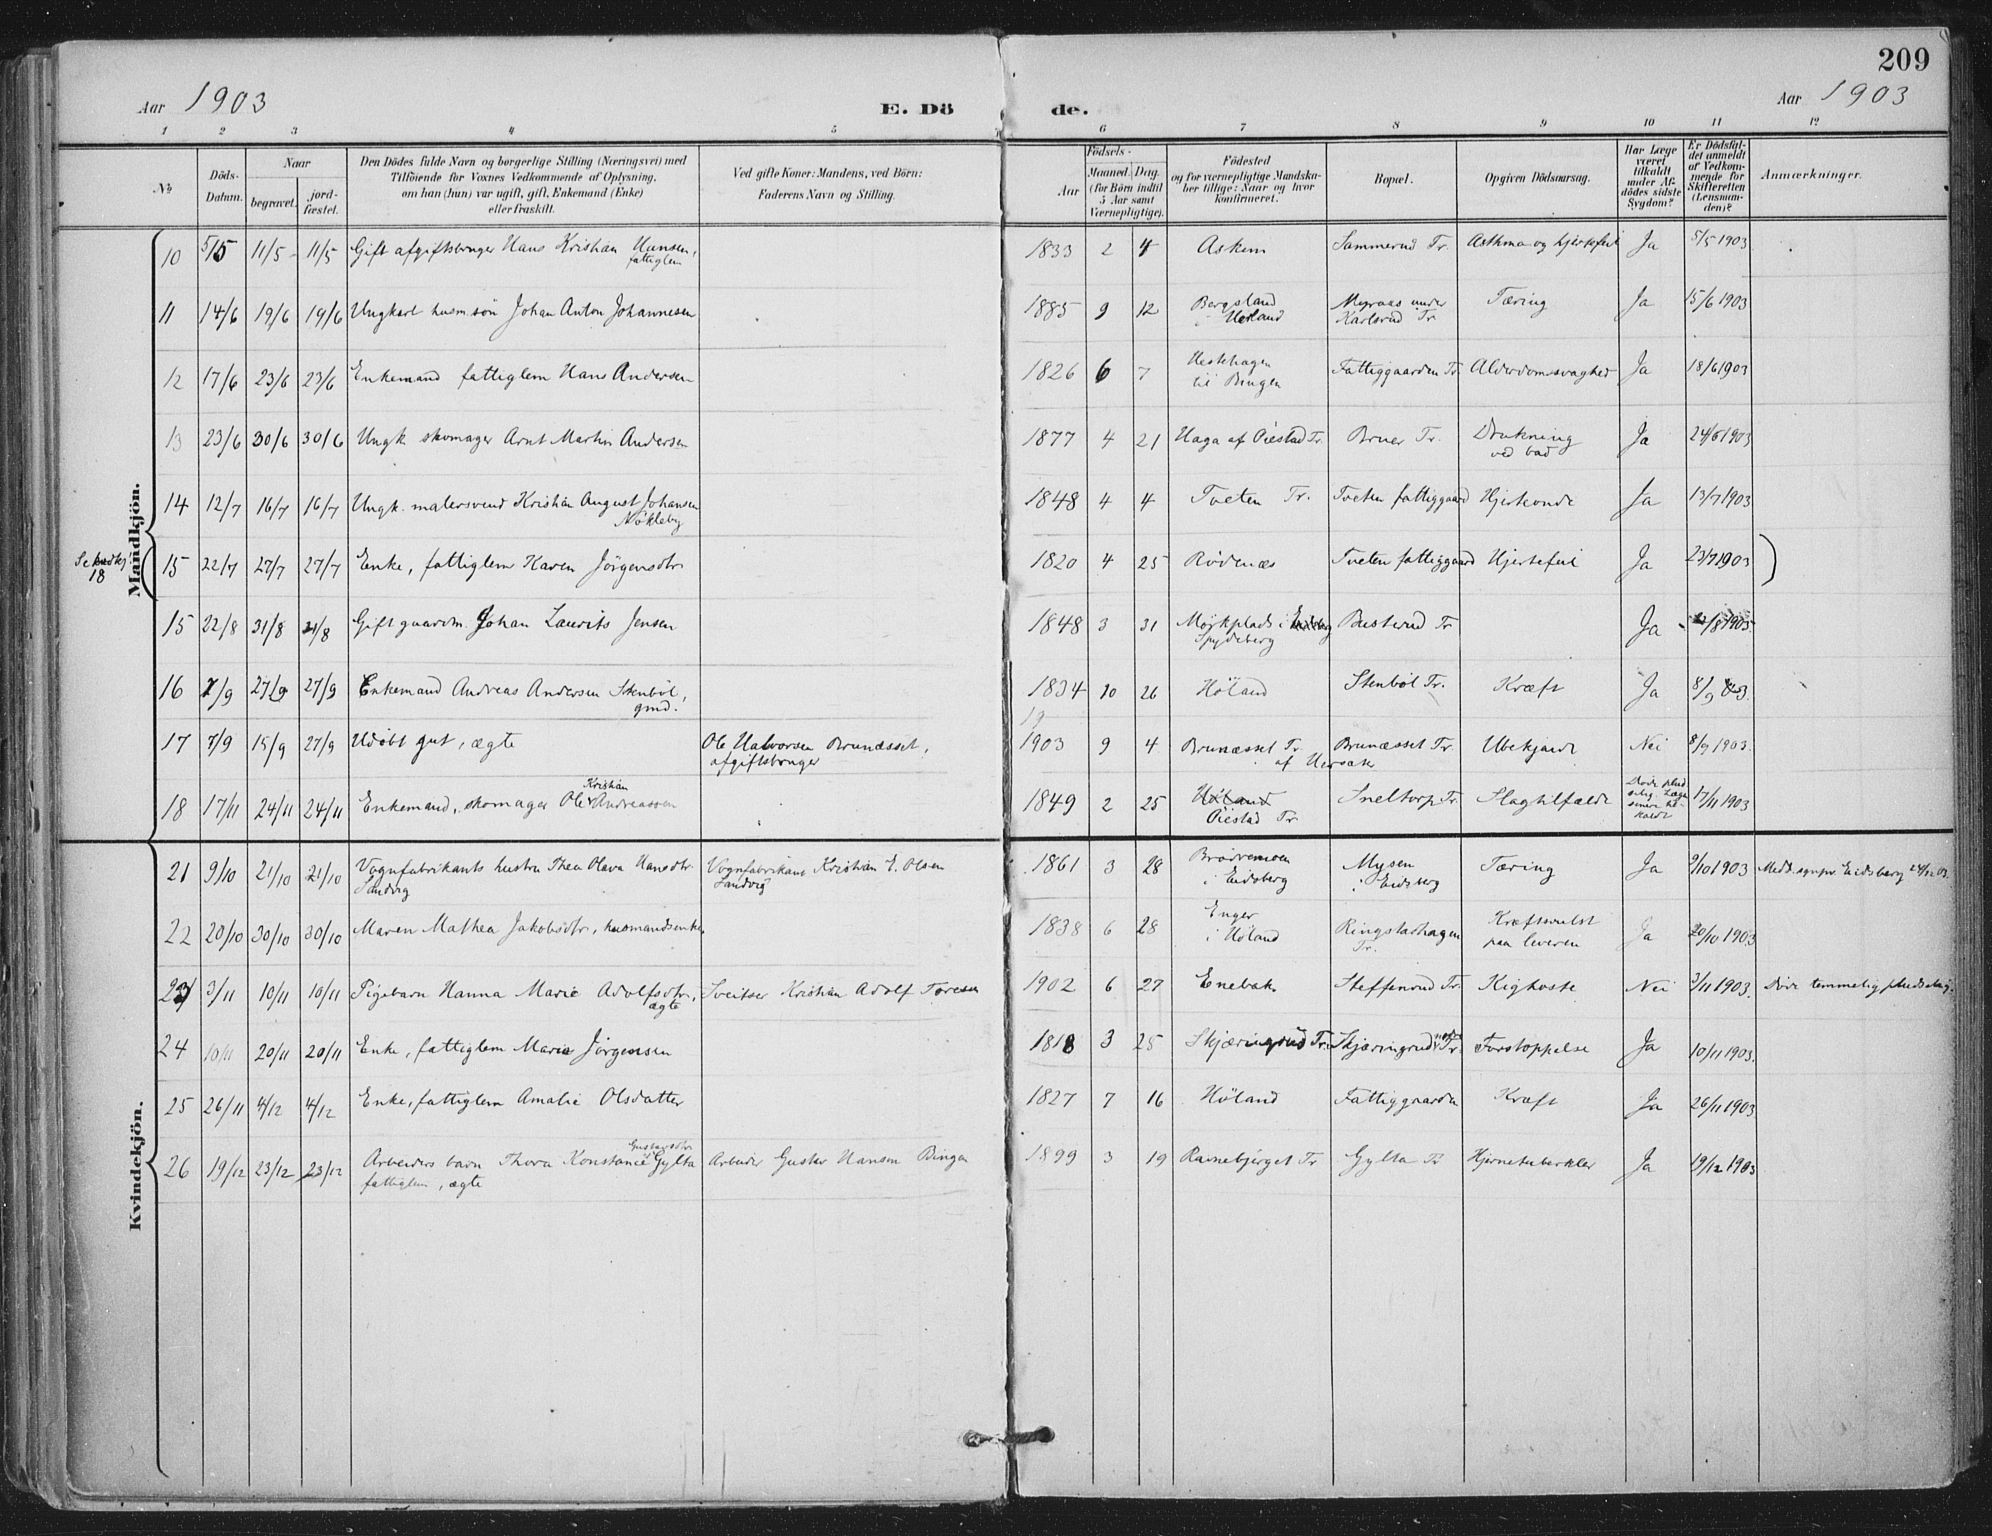 209
Aar 1903 E. Dö de. Aar 1903
1 2 3 4 5 6 7 8 9 10 11 12
No
Döds-Datum.
Naar
begravet.
jord-fæstet.
Den Dödes fulde Navn og borgerlige Stilling (Næringsvei) med
Tilföiende for Voxnes Vedkommende af Oplysning,
om han (hun) var ugift, gift, Enkemand (Enke)
eller fraskilt.
Ved gifte Koner: Mandens, ved Börn:
Faderens Navn og Stilling.
Födsels-
Aar
Maaned. Dag.
(for Börn indtil
5 Aar samt
Værnepligtige).
Födested
og for værnepligtige Mandska-
ber tillige: Naar og hvor
konfirmeret.
Bopæl.
Opgiven Dödsaarsag.
Har Læge
været
tilkaldt
under Af-
dödes sidste
Sygdom?
Er Dödsfal-
det anmeldt
af Vedkom-
mende for
Skifteretten
(Lensman-
den)?
Anmærkninger.
Mandkjön.
10 5/5 11/5 11/5 Gift afgiftsbruger Hans Kristian Hansen, fattiglem 1833 2 4 Askem Sammerud Tr. Asthma og hjertefeil Ja 5/5 1903
11 14/6 19/6 19/6 Ungkarl husm.søn Johan Anton Johannesen 1885 9 12 Bergsland i Høland Myraas under Karlsrud Tr. Tæring Ja 15/6 1903
12 17/6 23/6 23/6 Enkemand fattiglem Hans Andersen 1826 6 7 Hestehagen til Bingen Fattiggaarden Tr. Alderdomssvaghed Ja 18/6 1903
13 23/6 30/6 30/6 Ungk. skomager Arnt Martin Andersen 1877 4 21 Haga af Øiestad Tr. Bruer Tr. Drukning ved bad Ja 24/6 1903
14 12/7 16/7 16/7 Ungk. malersvend Kristian August Johansen Nøkleby 1848 4 4 Tveten Tr. Tveten fattiggaard Hjerteonde Ja 13/7 1903
Se kvdkj. 18
15 22/7 27/7 27/7 Enke, fattiglem Karen Jørgensdtr 1820 4 25 Rødenæs Tveten fattiggaard Hjertefeil Ja 23/7 1903 )
15 22/8 31/8 31/8 Gift gaardm. Johan Laurits Jensen 1848 3 31 Mørkplads i Spydeberg Busterud Tr Ja /8 1903
16 7/9 27/9 27/9 Enkemand Andreas Andersen Stenbøl, gmd. 1834 10 26 Høland Stenbøl Tr. Kræft Ja 8/9 03.
17 7/9 15/9 27/9 Udøbt gut, ægte Ole Halvorsen Brunæsset, afgiftsbruger 19 1903 9 4 Brunæsset Tr. af Hersæk Brunæsset Tr. Ubekjendt Nei 8/9 1903.
18 17/11 24/11 24/11 Enkemand, skomager Ole Kristian Andreassen 1849 2 25 Høland Øiestad Tr Sneltorp Tr. Slagtilfælde Døde plud- selig. Læge 17/11 1903
Kvindekjön.
21 9/10 21/10 21/10 Vognfabrikants hustru Thea Olava Hansdtr. Sandvig Vognfabrikant Kristian E. Olsen Sandvig 1861 3 28 i Eidsberg Mysen i Eidsberg Tæring Ja 9/10 1903 Medd. sgnpr. Eidsberg 24/12 03.
22 20/10 30/10 30/10 Maren Mathea Jakobsdtr, husmandsenke 1838 6 28 Enger i Høland Ringstadhagen Tr. Kræftsvulst paa leveren Ja 20/10 1903
23 3/11 10/11 10/11 Pigebarn Hanna Marie Adolfsdtr., ægte Sveitser Kristian Adolf Toresen 1902 6 27 Enebak Steffenrud Tr. Kighoste Nei 3/11 1903. Døde temmelig pludselig.
24 10/11 20/11 20/11 Enke, fattiglem Marie Jørgensen 1818 3 25 Skjæringrud Tr. Skjæringrud nedre Tr. Forstoppelse Ja 10/11 1903.
25 26/11 4/12 4/12 Enke, fattiglem Amalie Olsdatter 1827 7 16 Høland Fattiggaarden Kræft Ja 26/11 1903
26 19/12 23/12 23/12 Arbeiders barn Thora Konstance Gustavsdtr Gylta fattiglem, ægte Arbeider Gustav Hansen Bingen 1899 3 19 Ravnebjerget Tr Gylta Tr Hjernetuberkler Ja 19/12 1903